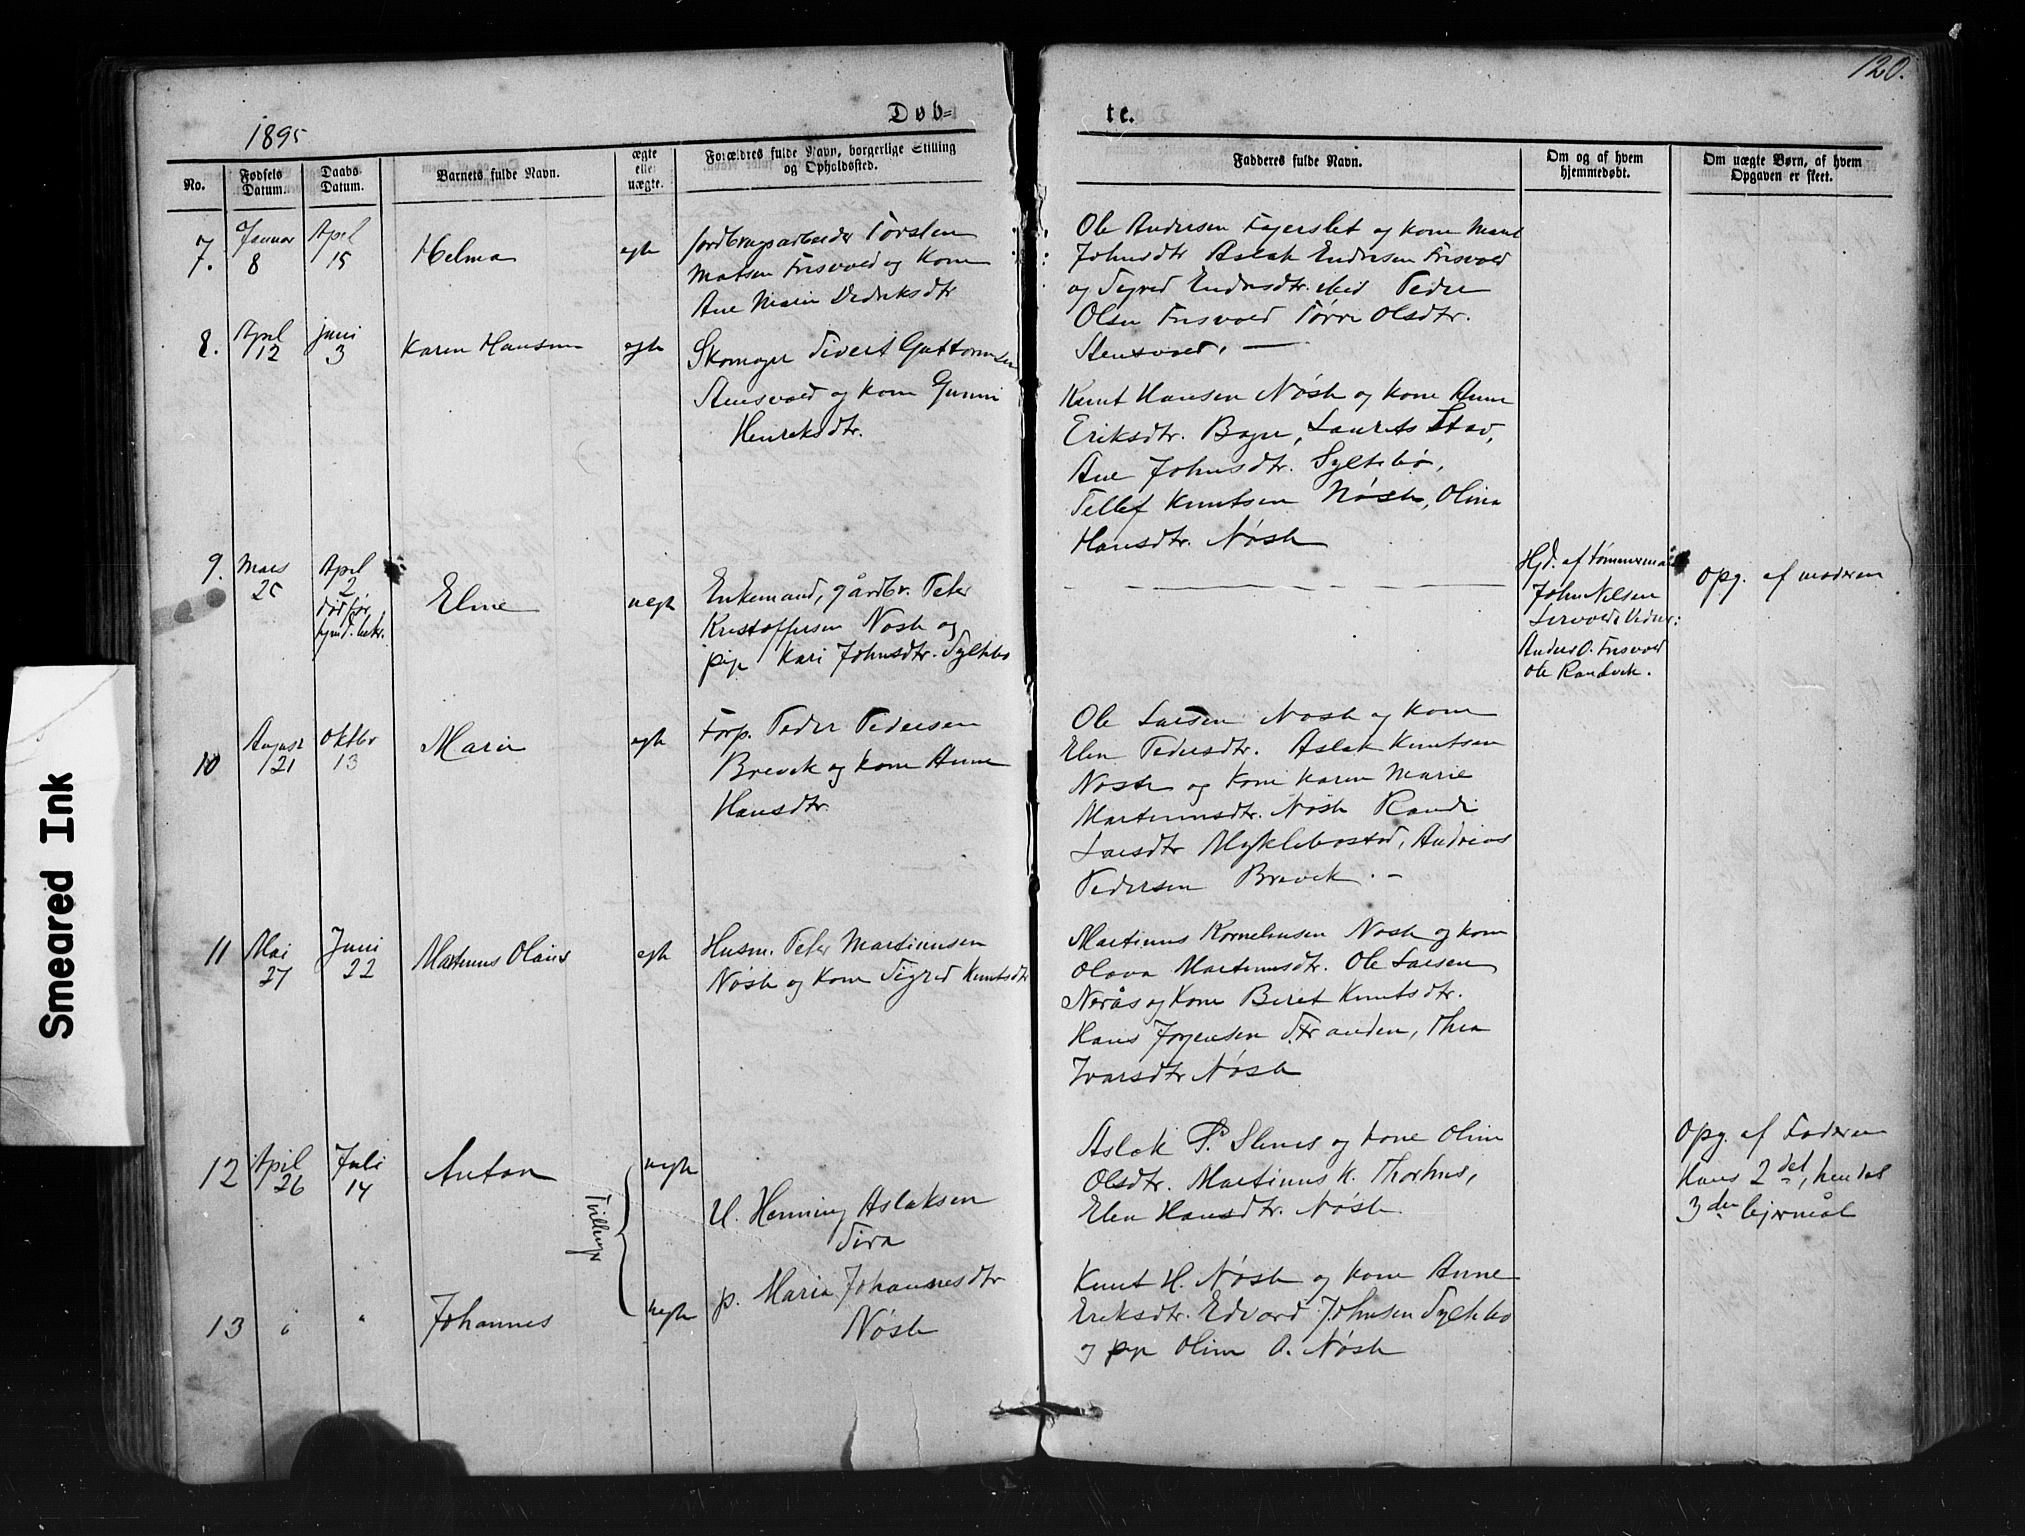 120.
1895
Døb=
te.
No.
Fødsels Datum.
Daabs Datum.
Barnets fulde Navn.
ægte eller uægte.
Forældres fulde Navn, borgerlige Stilling og Opholdssted.
Fadderes fulde Navn.
Om og af hvem hjemmedøbt.
Om uægte Børn, af hvem Opgaven er skeet.
7.
Januar
8
April
15
Helma
egte
Jordbrugsarbeider Torsten
Matsen Frisvold og kone
Ane Marie Dedriksdtr
Ole Andersen Fagerslet og kone Marit
Johnsdtr Aslak Endresen Frisvold
og Sigred Endresdtr. ibid Peder
Olsen Frisvold Olsdtr.
Stensvold. —
8.
April
12
Juni
3
Karen Hansine
egte
Skomager Sivert Guttormsen
Stensvold og kone Gunni
Henriksdtr.
Knut Hansen Nøste og kone Anne
Eriksdtr. Laurits Stav,
Ane Johnsdtr. Syltebø,
Tellef Knutsen Nøste, Olina
Hansdtr. Nøste
9.
Mars
25
April
2
død før
Eline
uegte
Enkemand, gårdbr. Peter
Kristoffersen Nøste og
pige Kari Johnsdtr. Syltebø
Hjd. af tømmermand
John Nilsen
Anders O. Frisvold
Ole Randvik.
Opg. af moderen
10
August
21
Oktbr
13
Marie
egte
Forp. Peder Pedersen
Brevik og kone Anne
Hansdtr.
Ole Larsen Nøste og kone
Elen Pedersdtr. Aslak Knutsen
Nøste og kone Karen Marie
Martinusdtr. Nøste Randi
Larsdtr Myklebostad, Andreas
Pedersen Brevik. —
11
Mai
27
Juni
22
Martinus Olaus
egte
Husm. Peter Martinusen
Nøste og kone Sigred Knutsdtr
Martinus Korneliusen Nøste og kone
Olava Martinusdtr. Ole Larsen
Nerås og kone Beret Knutsdtr.
Hans Jørgensen Stranden, Thea
Ivarsdtr Nøste
12
April
26
Juli
14
Anton
Tvillinger
uegte
U. Henning Aslaksen
Sira
Aslak P. Slenes og kone Olina
Olsdtr. Martinus K. Thorhus,
Elen Hansdtr. Nøste.
Opg. af Faderen
Hans 2det, hendes
3die leiermål
13
"
"
Johannes
uegte
p. Maria Johannesdtr
Nøste
Knut H. Nøste og kone Anne
Eriksdtr. Edvard Johnsen Syltebø
og pige Oline O. Nøste
Smeared Ink